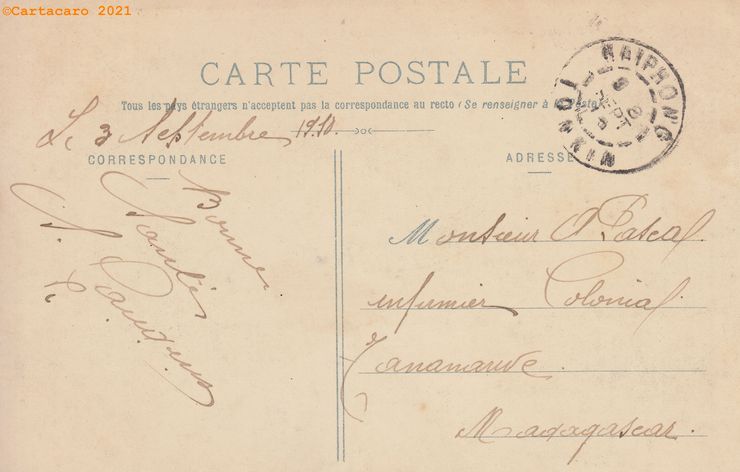 ©Cartacaro 2021
CARTE POSTALE
Tous les pays étrangers n'acceptent pas la correspondance au recto (Se renseigner à la Poste)
Le 3 Septembre 1910.
CORRESPONDANCE
Bonne
Santé
ADRESSE
Monsieur A Pascal
infirmier Colonial
Tananarive
Madagascar.
HAIPHONG
SEPT
TONKIN